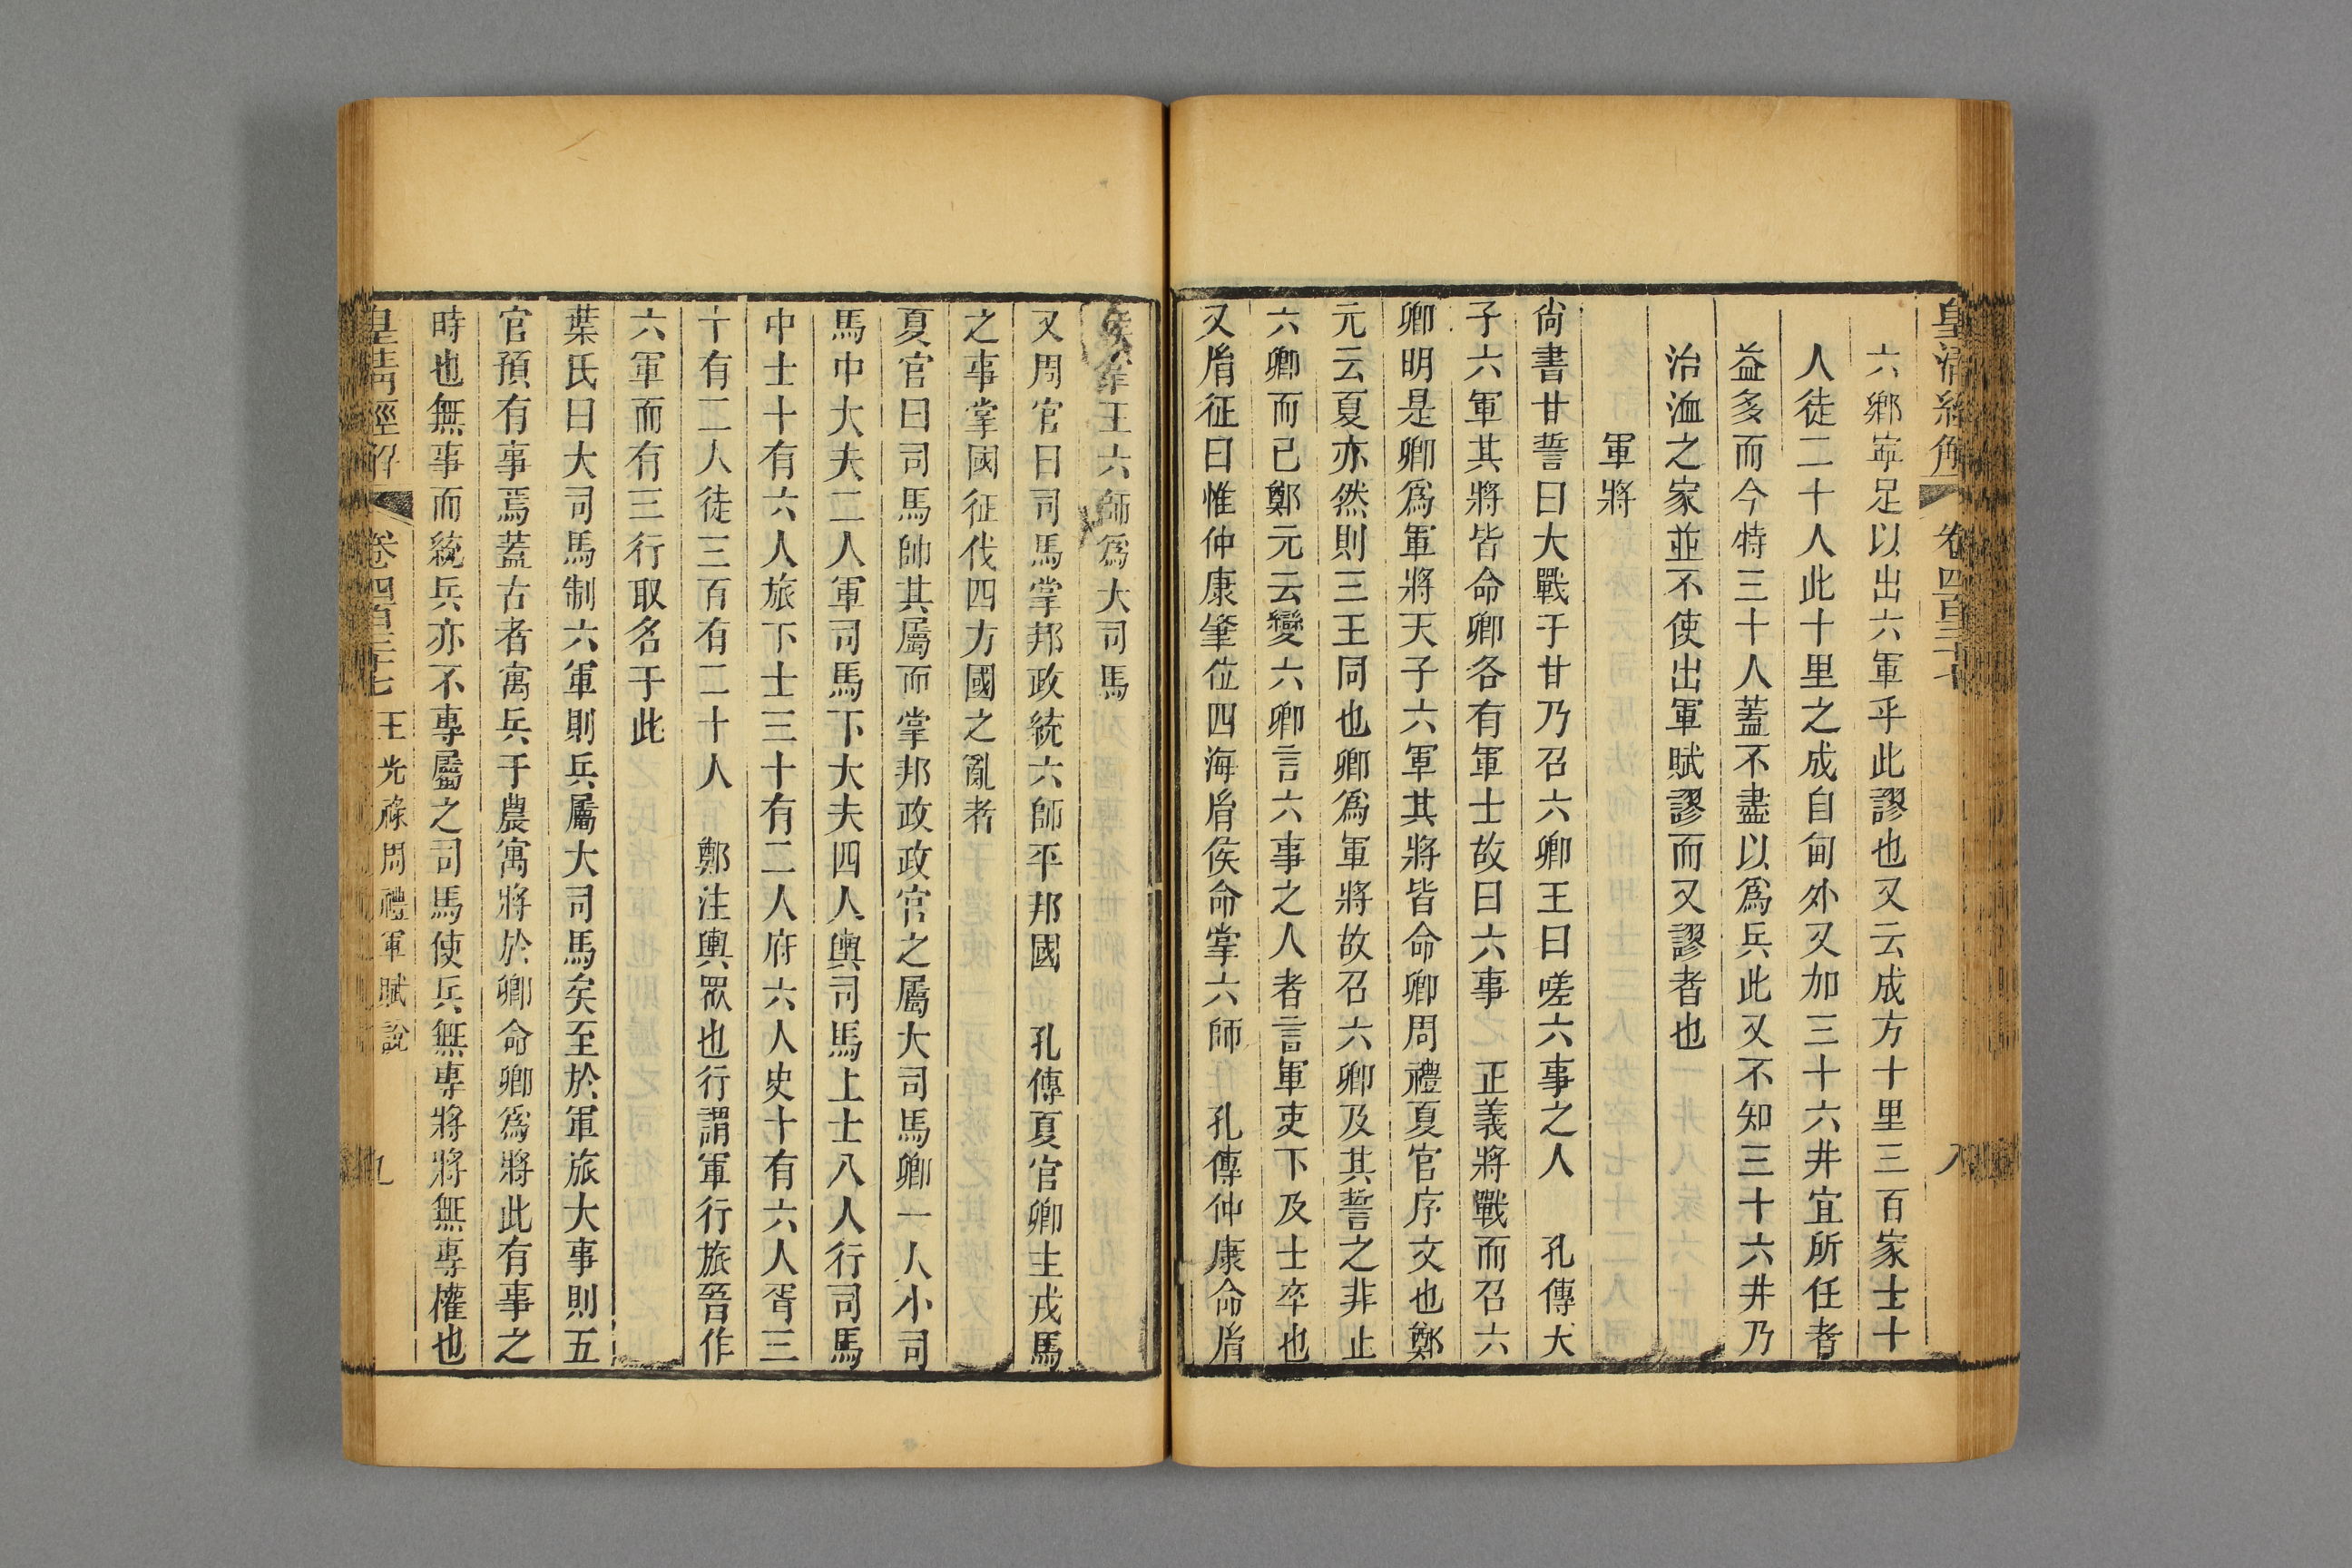 皇清經解 卷四百三十七 八
六鄉寕足以出六軍乎此謬也又云成方十里三百家士十
人徒二十人此十里之成自甸外又加三十六井宜所任者
益多而今特三十人蓋不盡以爲兵此又不知三十六井乃
治洫之家並不使出軍賦謬而又謬者也
軍將
尙書甘誓曰大戰于甘乃召六卿王曰嗟六事之人 孔傳天
子六軍其將皆命卿各有軍士故曰六事 正義將戰而召六
卿明是卿爲軍將天子六軍其將皆命卿周禮夏官序文也鄭
元云夏亦然則三王同也卿爲軍將故召六卿及其誓之非止
六卿而已鄭元云變六卿言六事之人者言軍吏下及士卒也
又胤征曰惟仲康肇位四海胤侯命掌六師 孔傳仲康命胤
侯掌王六師爲大司馬
又周官曰司馬掌邦政統六師平邦國 孔傳夏官卿主戎馬
之事掌國征伐四方國之亂者
夏官曰司馬帥其屬而掌邦政政官之屬大司馬卿一人小司
馬中大夫二人軍司馬下大夫四人輿司馬上士八人行司馬
中士十有六人旅下士三十有二人府六人史十有六人胥三
十有二人徒三百有二十人 鄭注輿眾也行謂軍行旅晉作
六軍而有三行取名于此
葉氏曰大司馬制六軍則兵屬大司馬矣至於軍旅大事則五
官預有事焉蓋古者寓兵于農寓將於卿命卿爲將此有事之
時也無事而統兵亦不專屬之司馬使兵無專將將無專權也
皇清經解 卷四百三十七 王光祿周禮軍賦說 九